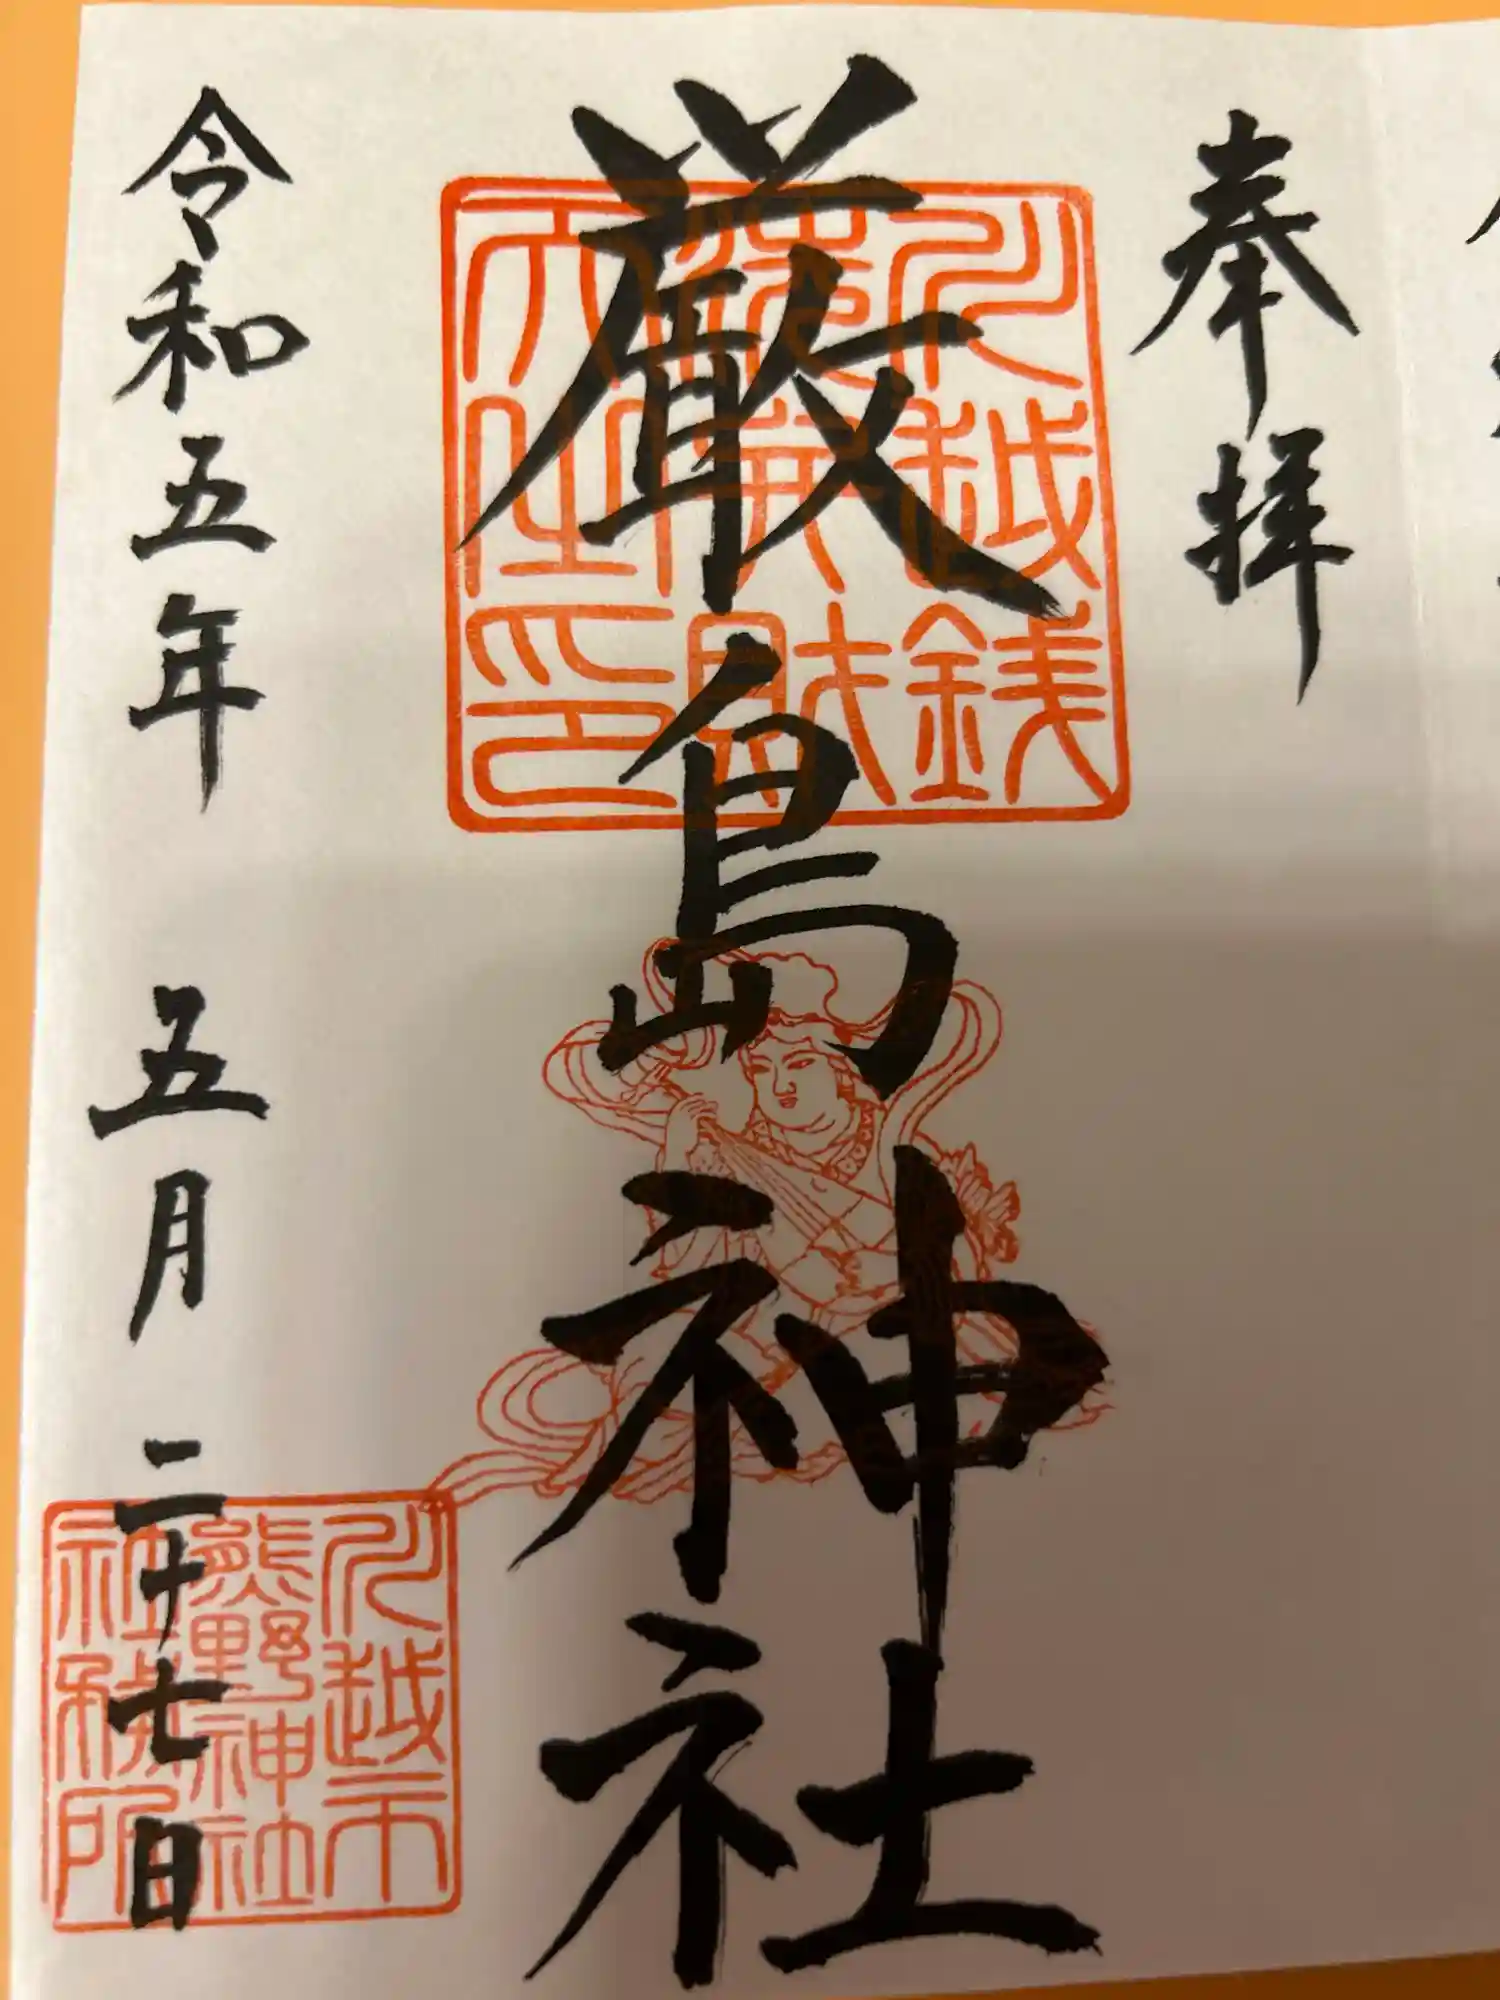 奉拝
厳島神社
川越銭
洗弁財
天社印
令和五年 五月 二十七日
川越市
熊野神社
社務所